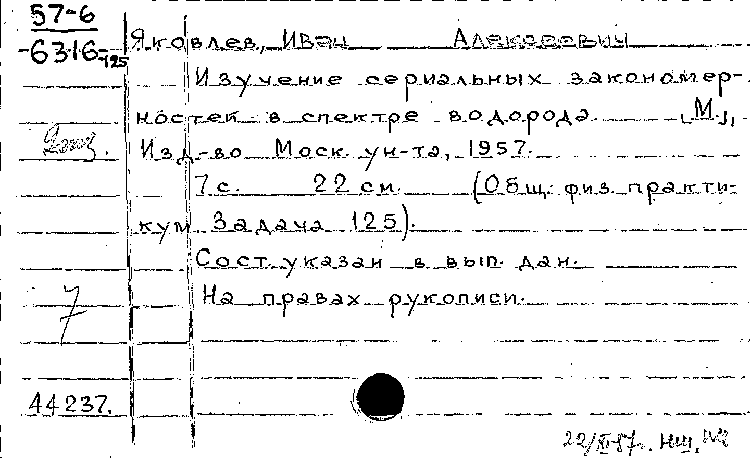 57-6
6316-125
Яковлев, Иван Алексеевич
Изучение сериальных закономер-
ностей в спектре водорода. [М.],
Изд-во Моск. ун-та, 1957.
7 с. 22 см. (Общ. физ. практи-
кум. Задача 125).
Сост. указан в вып. дан.
На правах рукописи.
7
44237.
22/XI-87г.